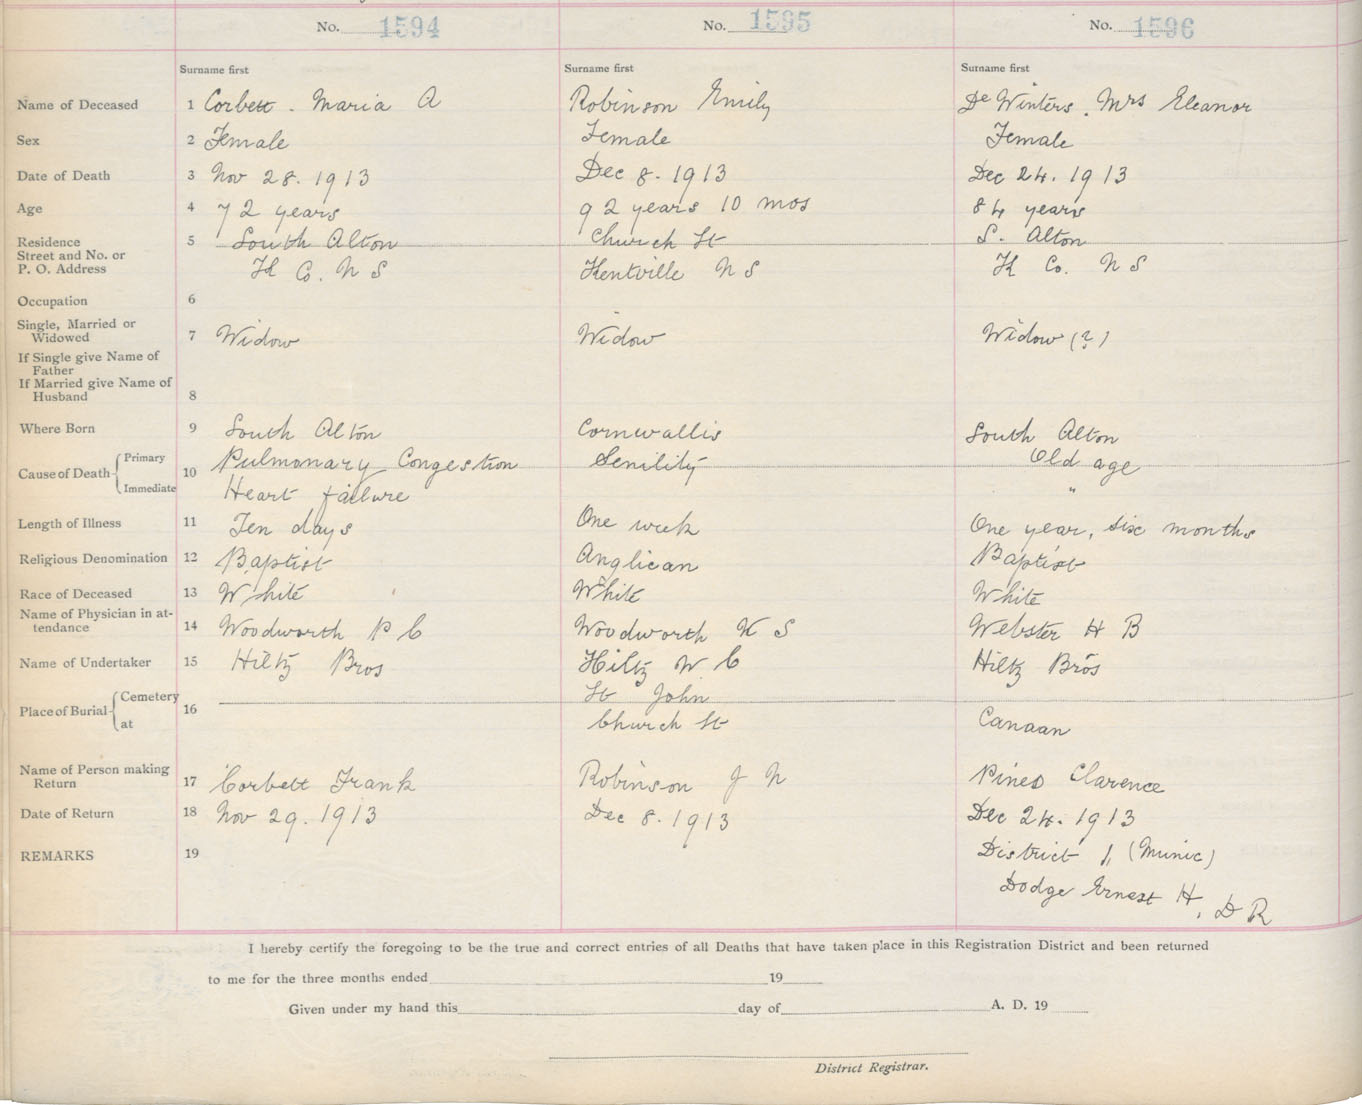 No. 1594 No. 1595 No. 1596
Surname first Surname first Surname first
Name of Deceased 1 Corbett. Maria A Robinson Emily De Winters. Mrs Eleanor
Sex 2 Female Female Female
Date of Death 3 Nov 28. 1913 Dec 8. 1913 Dec 24. 1913
Age 4 72 years 92 years 10 mos 84 years
Residence 5 South Alton Church St S. Alton
Street and No. or
P. O. Address K Co. N S Kentville N S K Co. N S
Occupation 6
Single, Married or
Widowed 7 Widow Widow Widow (?)
If Single give Name of
Father
If Married give Name of
Husband 8
Where Born 9 South Alton Cornwallis South Alton
Cause of Death Primary 10 Pulmonary Congestion Senility Old age
Immediate Heart failure "
Length of Illness 11 Ten days One week One year, six months
Religious Denomination 12 Baptist Anglican Baptist
Race of Deceased 13 White White White
Name of Physician in at-
tendance 14 Woodworth P C Woodworth K S Webster H B
Name of Undertaker 15 Hiltz Bros Hiltz W C Hiltz Bros
Place of Burial Cemetery 16 St John
at Church St Canaan
Name of Person making
Return 17 Corbett Frank Robinson J N Pineo Clarence
Date of Return 18 Nov 29. 1913 Dec 8. 1913 Dec 24. 1913
REMARKS 19 District 1, (Munic)
Dodge Ernest H, D R
I hereby certify the foregoing to be the true and correct entries of all Deaths that have taken place in this Registration District and been returned
to me for the three months ended 19
Given under my hand this day of A. D. 19
District Registrar.